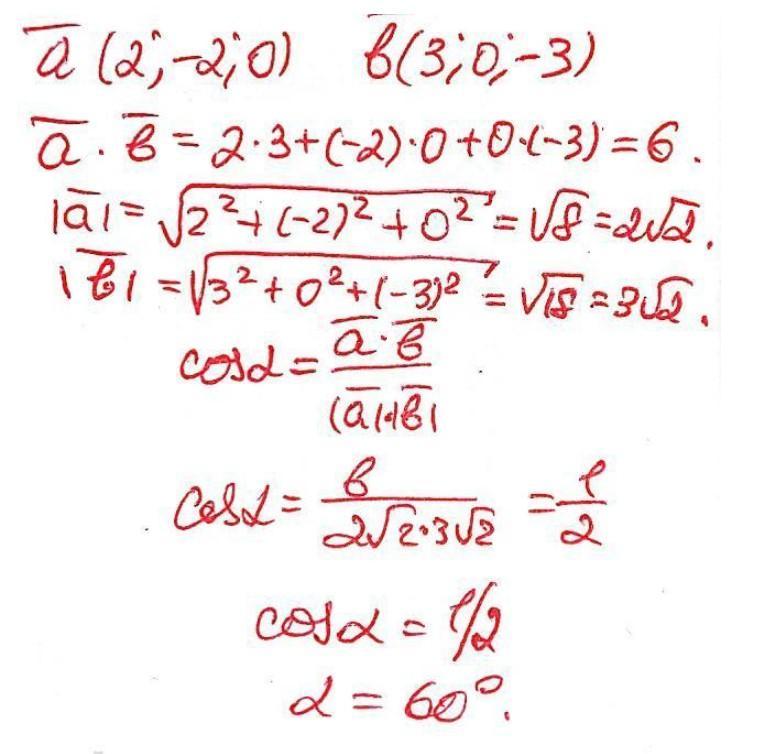 a̅ (2;-2;0) b(3;0;-3)
a̅ · b̅ = 2·3+(-2)·0+0·(-3)=6.
|a̅|=√(2²+(-2)²+0²)=√8=2√2.
|b̅|=√(3²+0²+(-3)²)=√18=3√2.
cosα= a̅·b̅ / |a̅|·|b̅|
cosα= 6 / 2√2·3√2 = 1/2
cosα = 1/2
α = 60°.